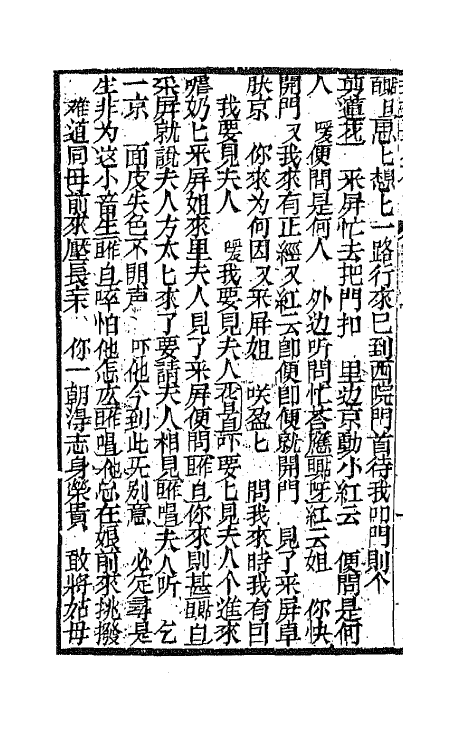 醜旦思匕想匕一路行來已到西院門首待我叩門則个
剪道花　采屏忙去把門扣　里边京動小紅云　便問是何
人　嗳便問是何人　外边听問忙荅應聽呀紅云姐　你快
開門又我來有正經又紅云即便即便就開門　見了采屏阜
朕京　你來为何因又采屏姐　咲盈匕　問我來時我有曰
我要見夫人　嗳我要見夫人丑直吓要匕見夫人个進來
嚐奶匕采屏姐來里夫人見了采屏便問睢旦你來則甚聽白
采屏就說夫人方太匕來了要請夫人相見睢唱夫人听　乞
一京　面皮失色不明声　吓他今到此旡别意　必定尋是
生非为这小畜生睢白啐怕他怎広睢唱他总在娘前來挑撥
难道同母前來壓長亲　你一朝淂志身榮貴　敢將姑母